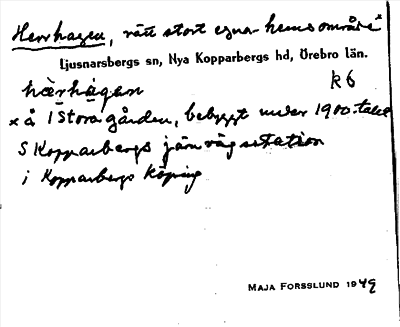 Herrhagen, rätt stort egna-hemsområde x
Ljusnarsbergs sn, Nya Kopparbergs hd, Örebro län.
hæ̀rhàgen k6
x å 1 Stora gården, bebyggt under 1900-talet
S Kopparbergs järnvägsstation
i Kopparbergs köping
MAJA FORSSLUND 1949